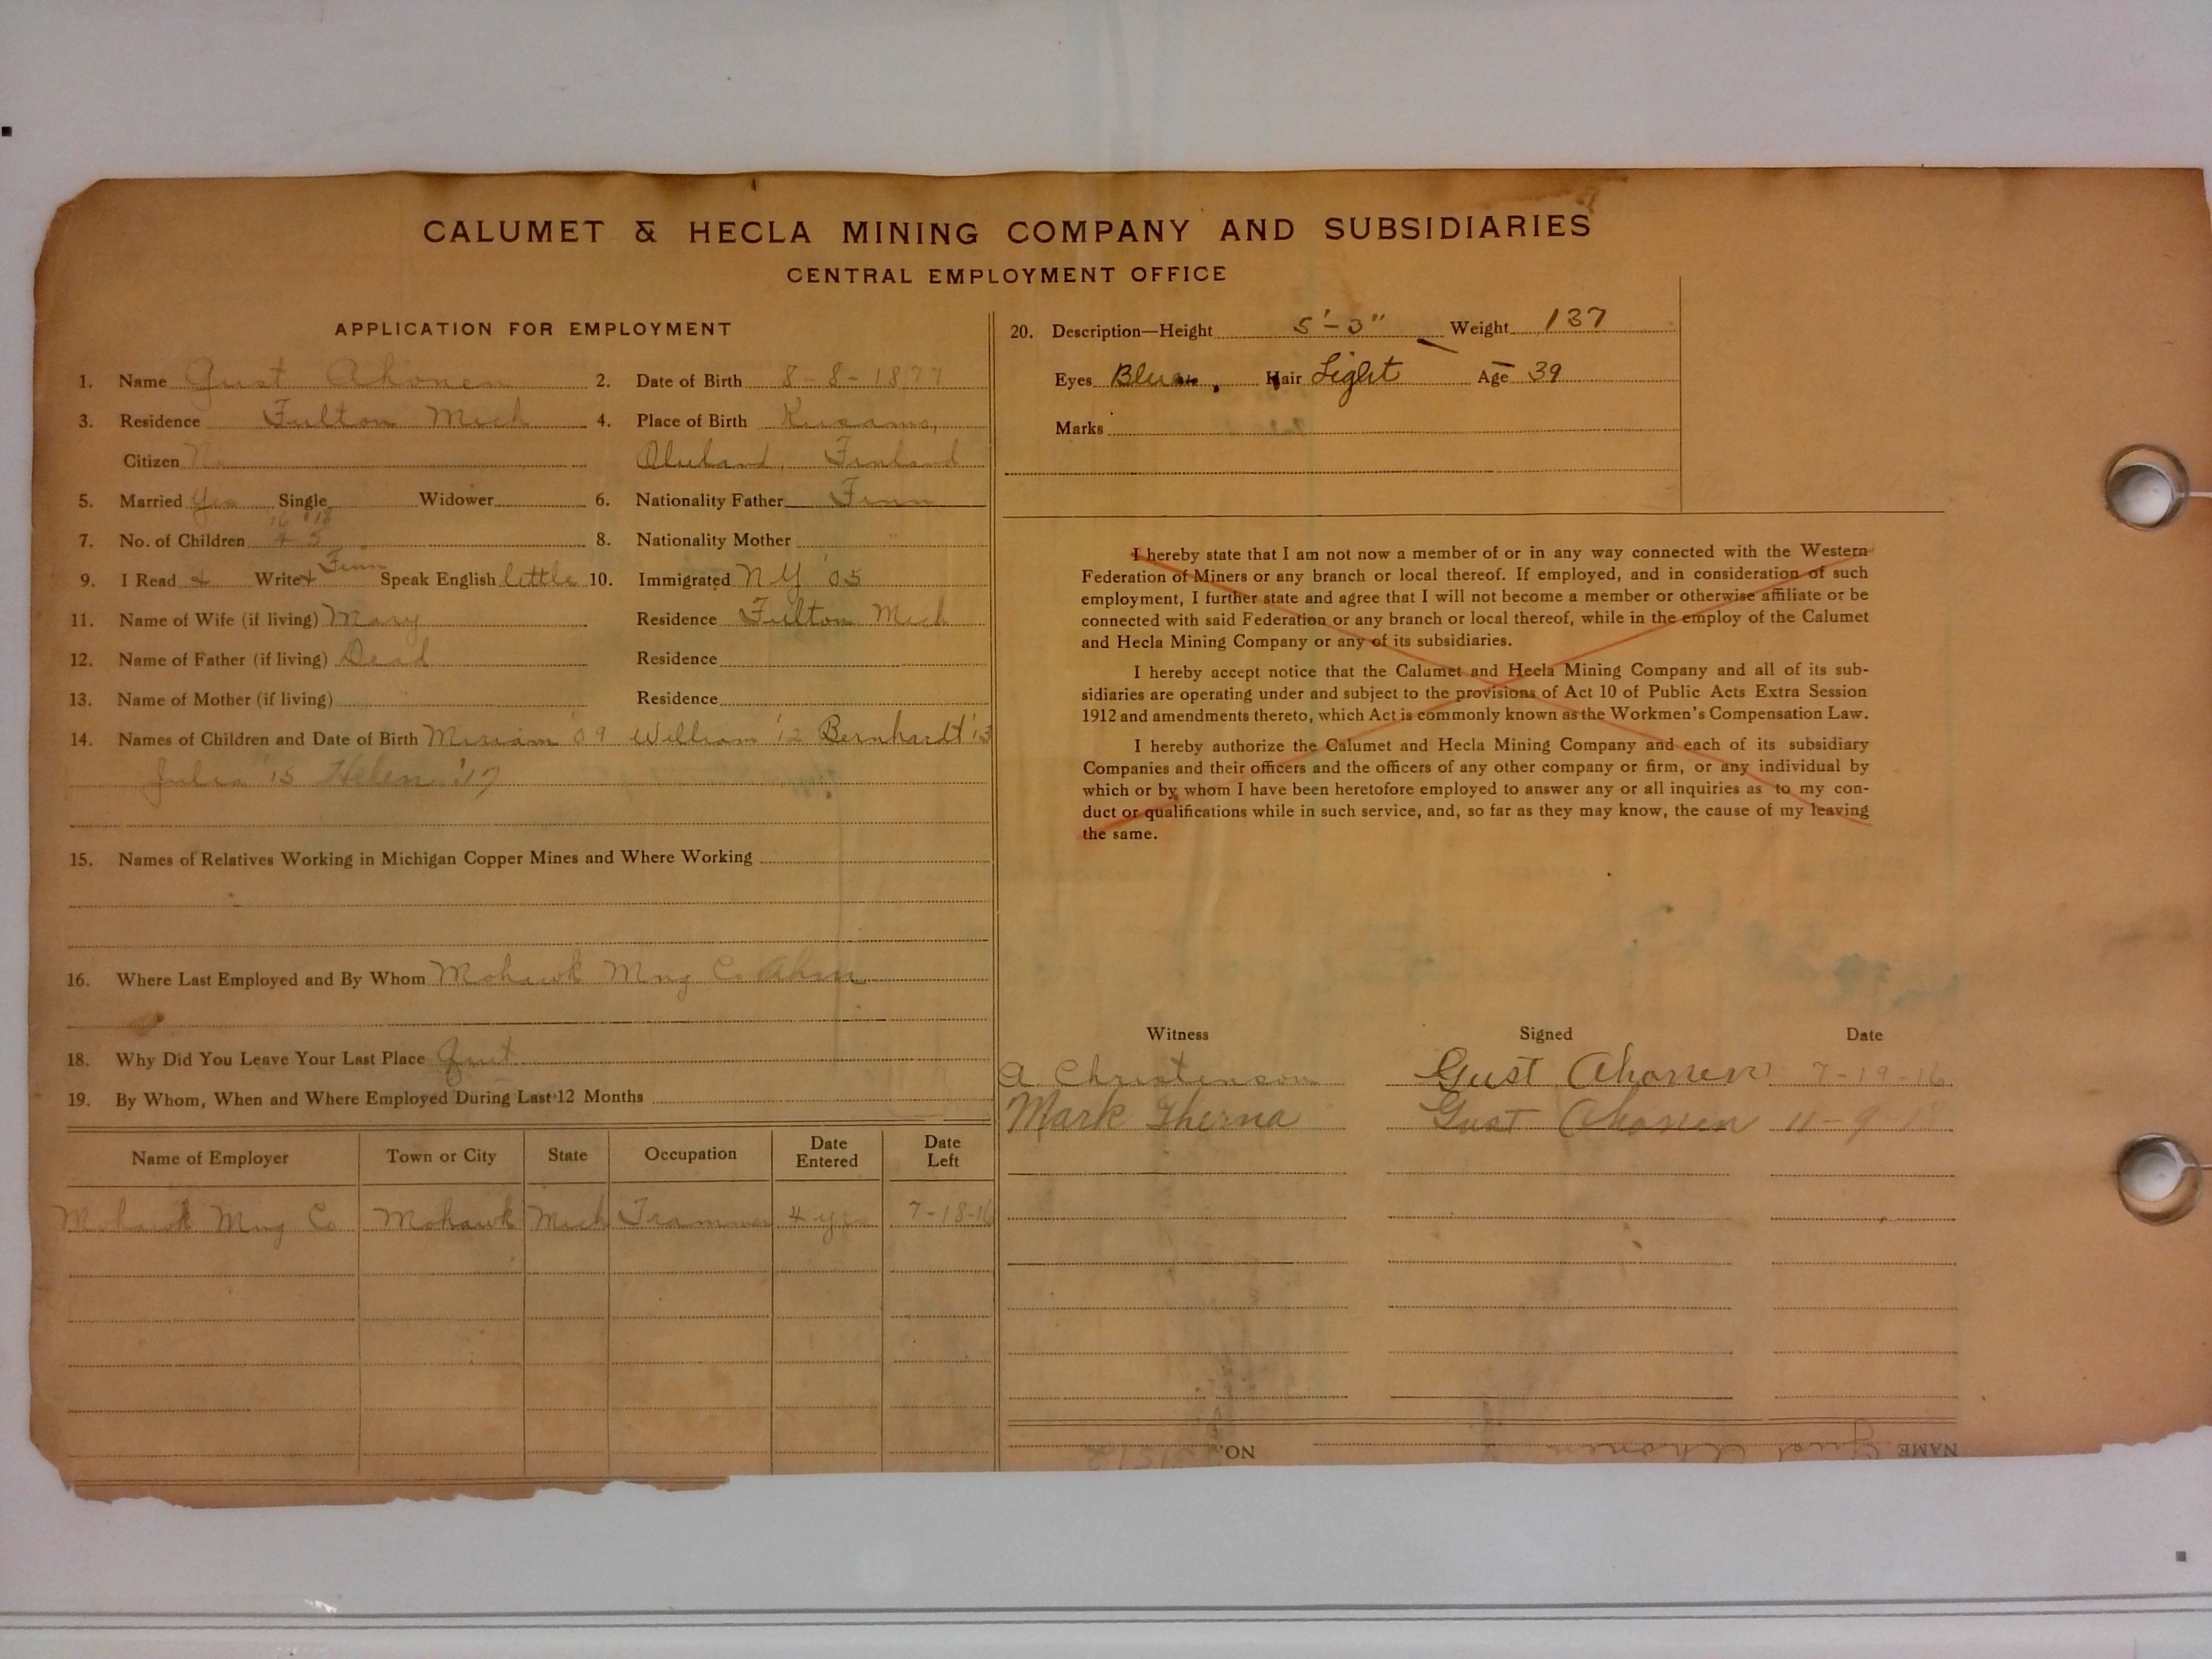 CALUMET & HECLA MINING COMPANY AND SUBSIDIARIES
CENTRAL EMPLOYMENT OFFICE
APPLICATION FOR EMPLOYMENT
1. Name Gust Ahonen 2. Date of Birth 8-8-1877
3. Residence Fulton Mich 4. Place of Birth
Citizen No Finland
5. Married Yes Single Widower 6. Nationality Father Finn
'16 '18
7. No. of Children 4 5 8. Nationality Mother "
Finn
9. I Read + Write + Speak English little 10. Immigrated N Y '05
11. Name of Wife (if living) Mary Residence Fulton Mich
12. Name of Father (if living) Dead Residence
13. Name of Mother (if living) " Residence
14. Names of Children and Date of Birth Miriam '09 William '12 Bernhardt '13
Julia '15 Helen '17
15. Names of Relatives Working in Michigan Copper Mines and Where Working
16. Where Last Employed and By Whom Mohawk Mng Co
18. Why Did You Leave Your Last Place Quit
19. By Whom, When and Where Employed During Last 12 Months
Name of Employer Town or City State Occupation Date Entered Date Left
Mohawk Mng Co Mohawk Mich Trammer 4 yrs 7-18-16
20. Description—Height 5'-3" Weight 137
Eyes Blue Hair Light Age 39
Marks
I hereby state that I am not now a member of or in any way connected with the Western
Federation of Miners or any branch or local thereof. If employed, and in consideration of such
employment, I further state and agree that I will not become a member or otherwise affiliate or be
connected with said Federation or any branch or local thereof, while in the employ of the Calumet
and Hecla Mining Company or any of its subsidiaries.
I hereby accept notice that the Calumet and Hecla Mining Company and all of its sub-
sidiaries are operating under and subject to the provisions of Act 10 of Public Acts Extra Session
1912 and amendments thereto, which Act is commonly known as the Workmen's Compensation Law.
I hereby authorize the Calumet and Hecla Mining Company and each of its subsidiary
Companies and their officers and the officers of any other company or firm, or any individual by
which or by whom I have been heretofore employed to answer any or all inquiries as to my con-
duct or qualifications while in such service, and, so far as they may know, the cause of my leaving
the same.
Witness Signed Date
A. Christenson Gust Ahonen 7-19-16
Mark Gust Ahonen 11-9-18
NAME Gust Ahonen NO.